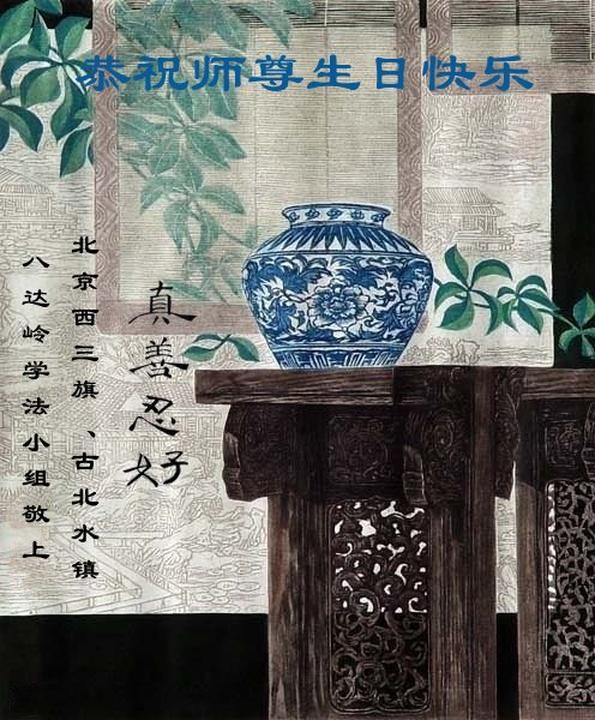 恭祝师尊生日快乐
真善忍好
北京西三旗、古北水镇
八达岭学法小组敬上